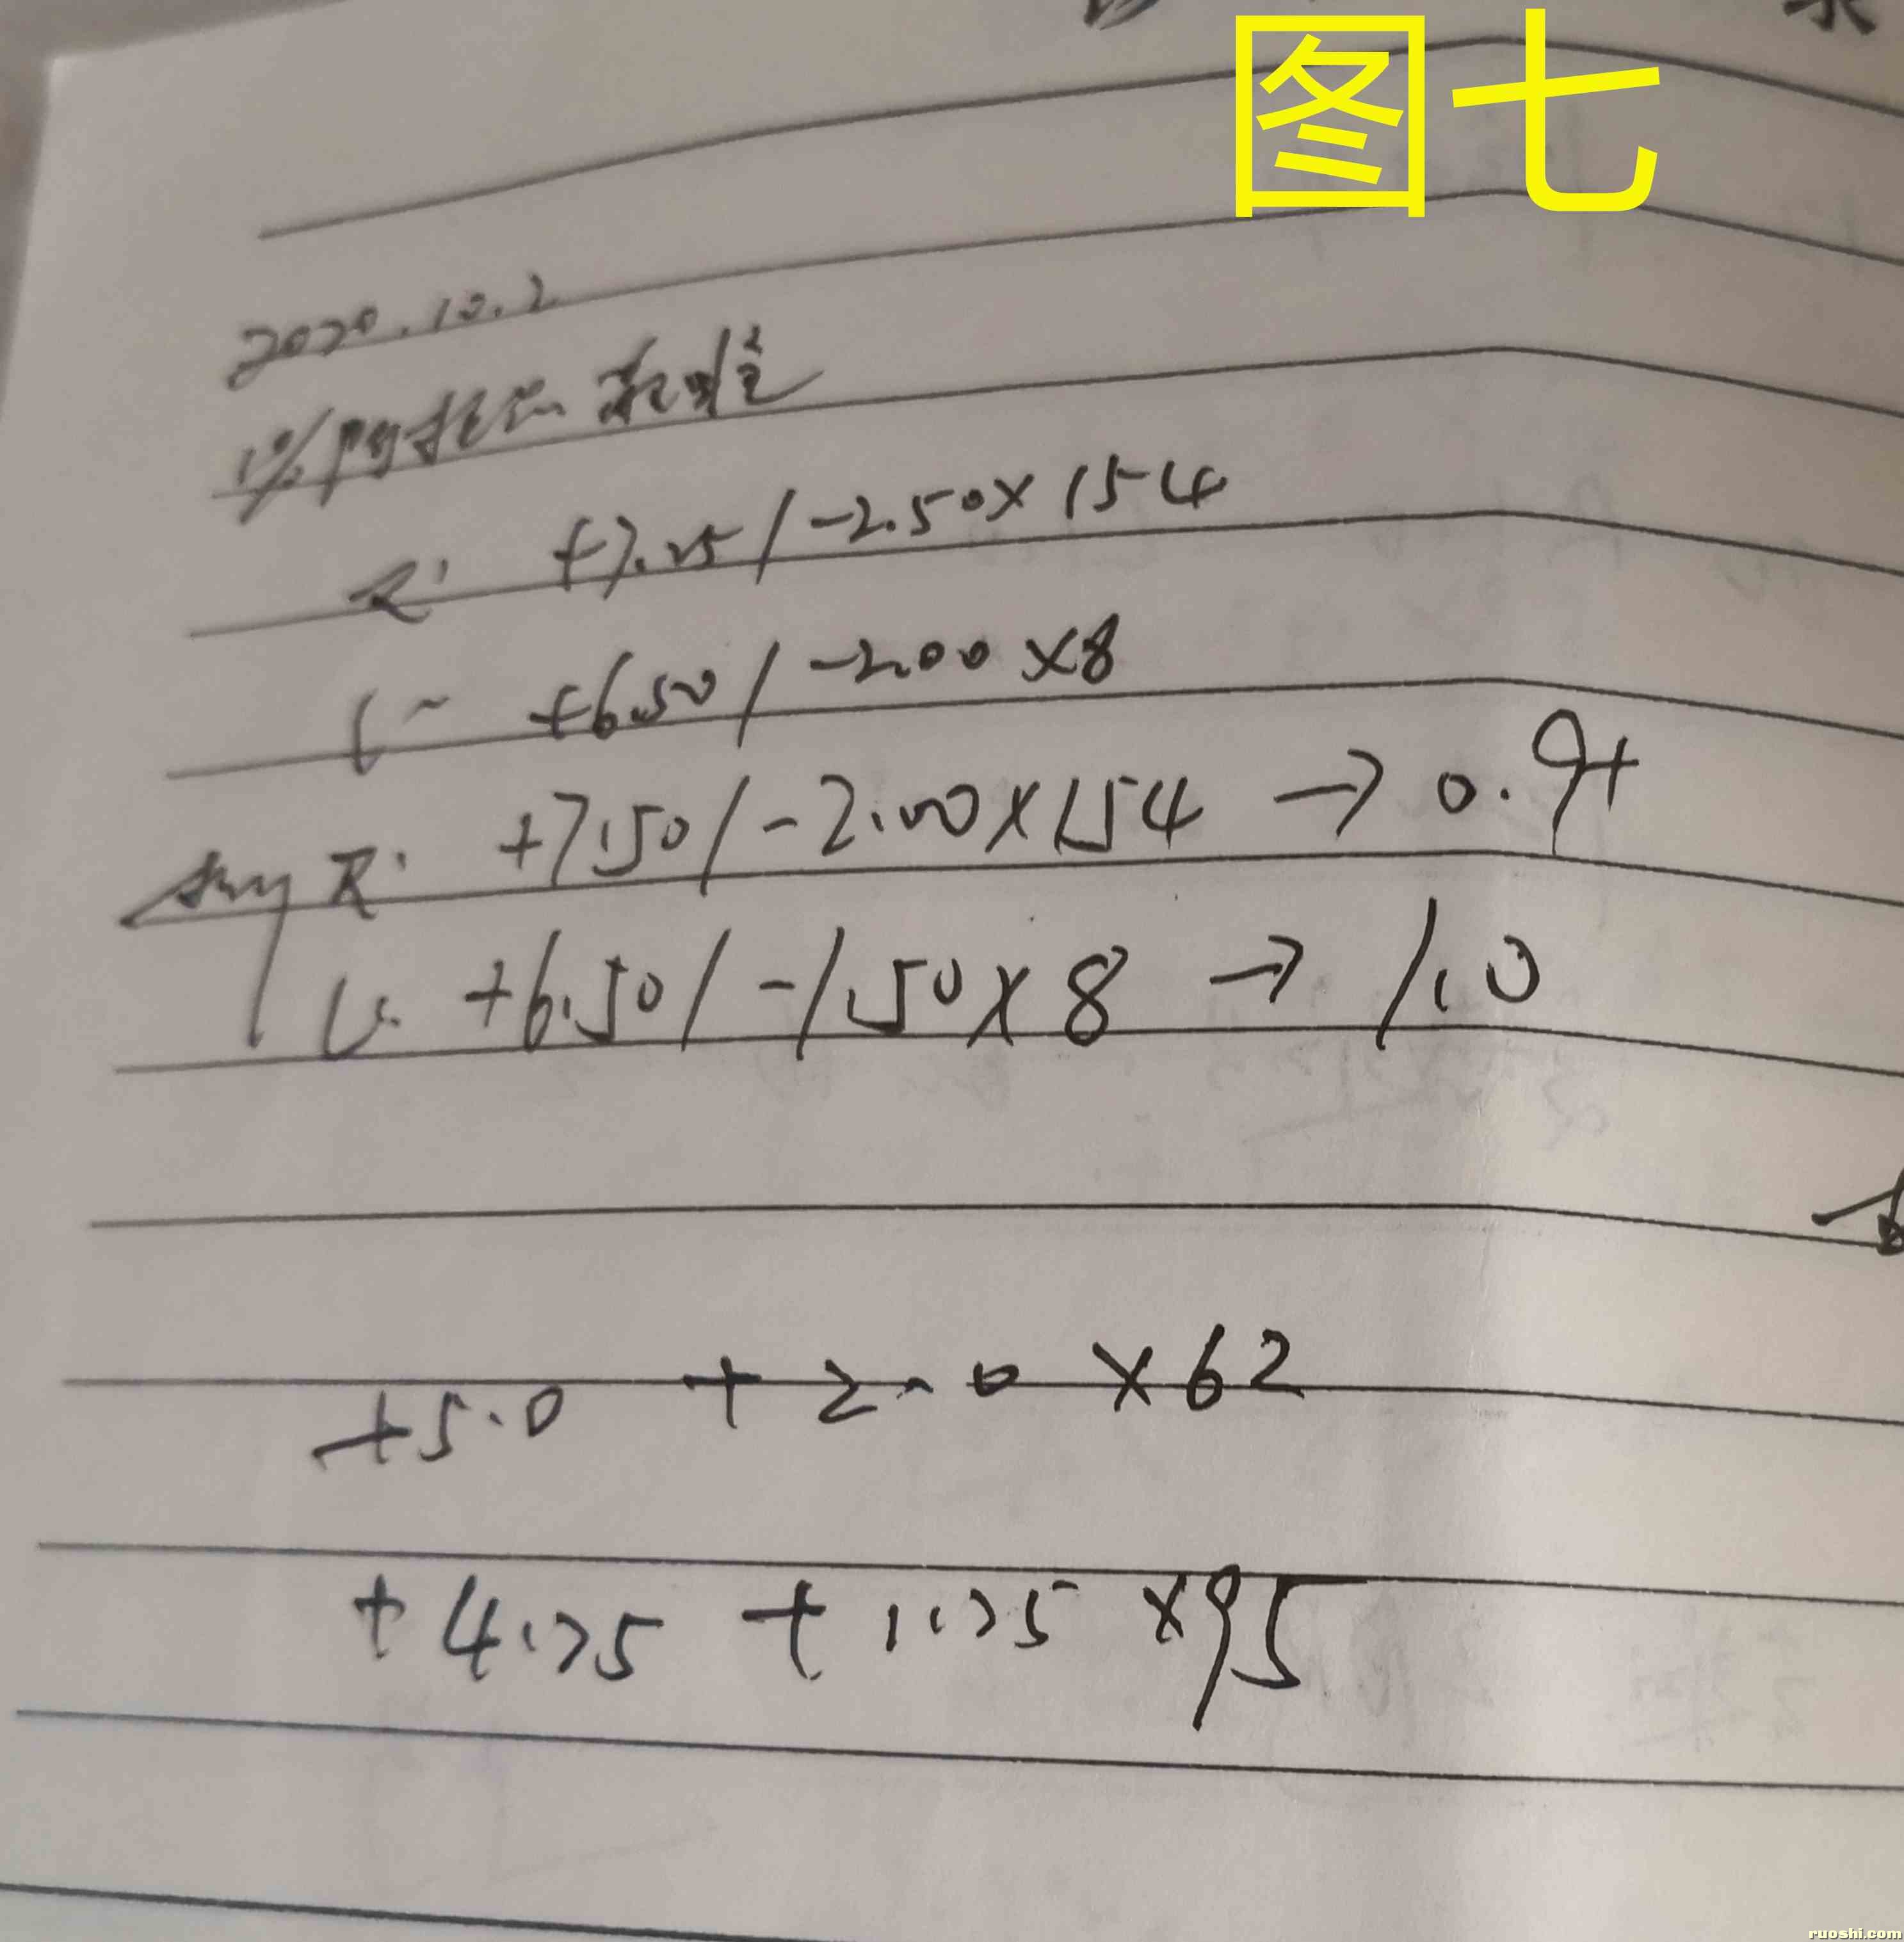 图七
2020.10.2
1%阿托品散瞳
R: +7.25/-2.50×154
L: +6.50/-2.00×8
R: +7.50/-2.00×154 → 0.9+
L: +6.50/-1.50×8 → 1.0
+5.0 +2.0 ×62
+4.75 +1.75 ×95
ruoshi.com